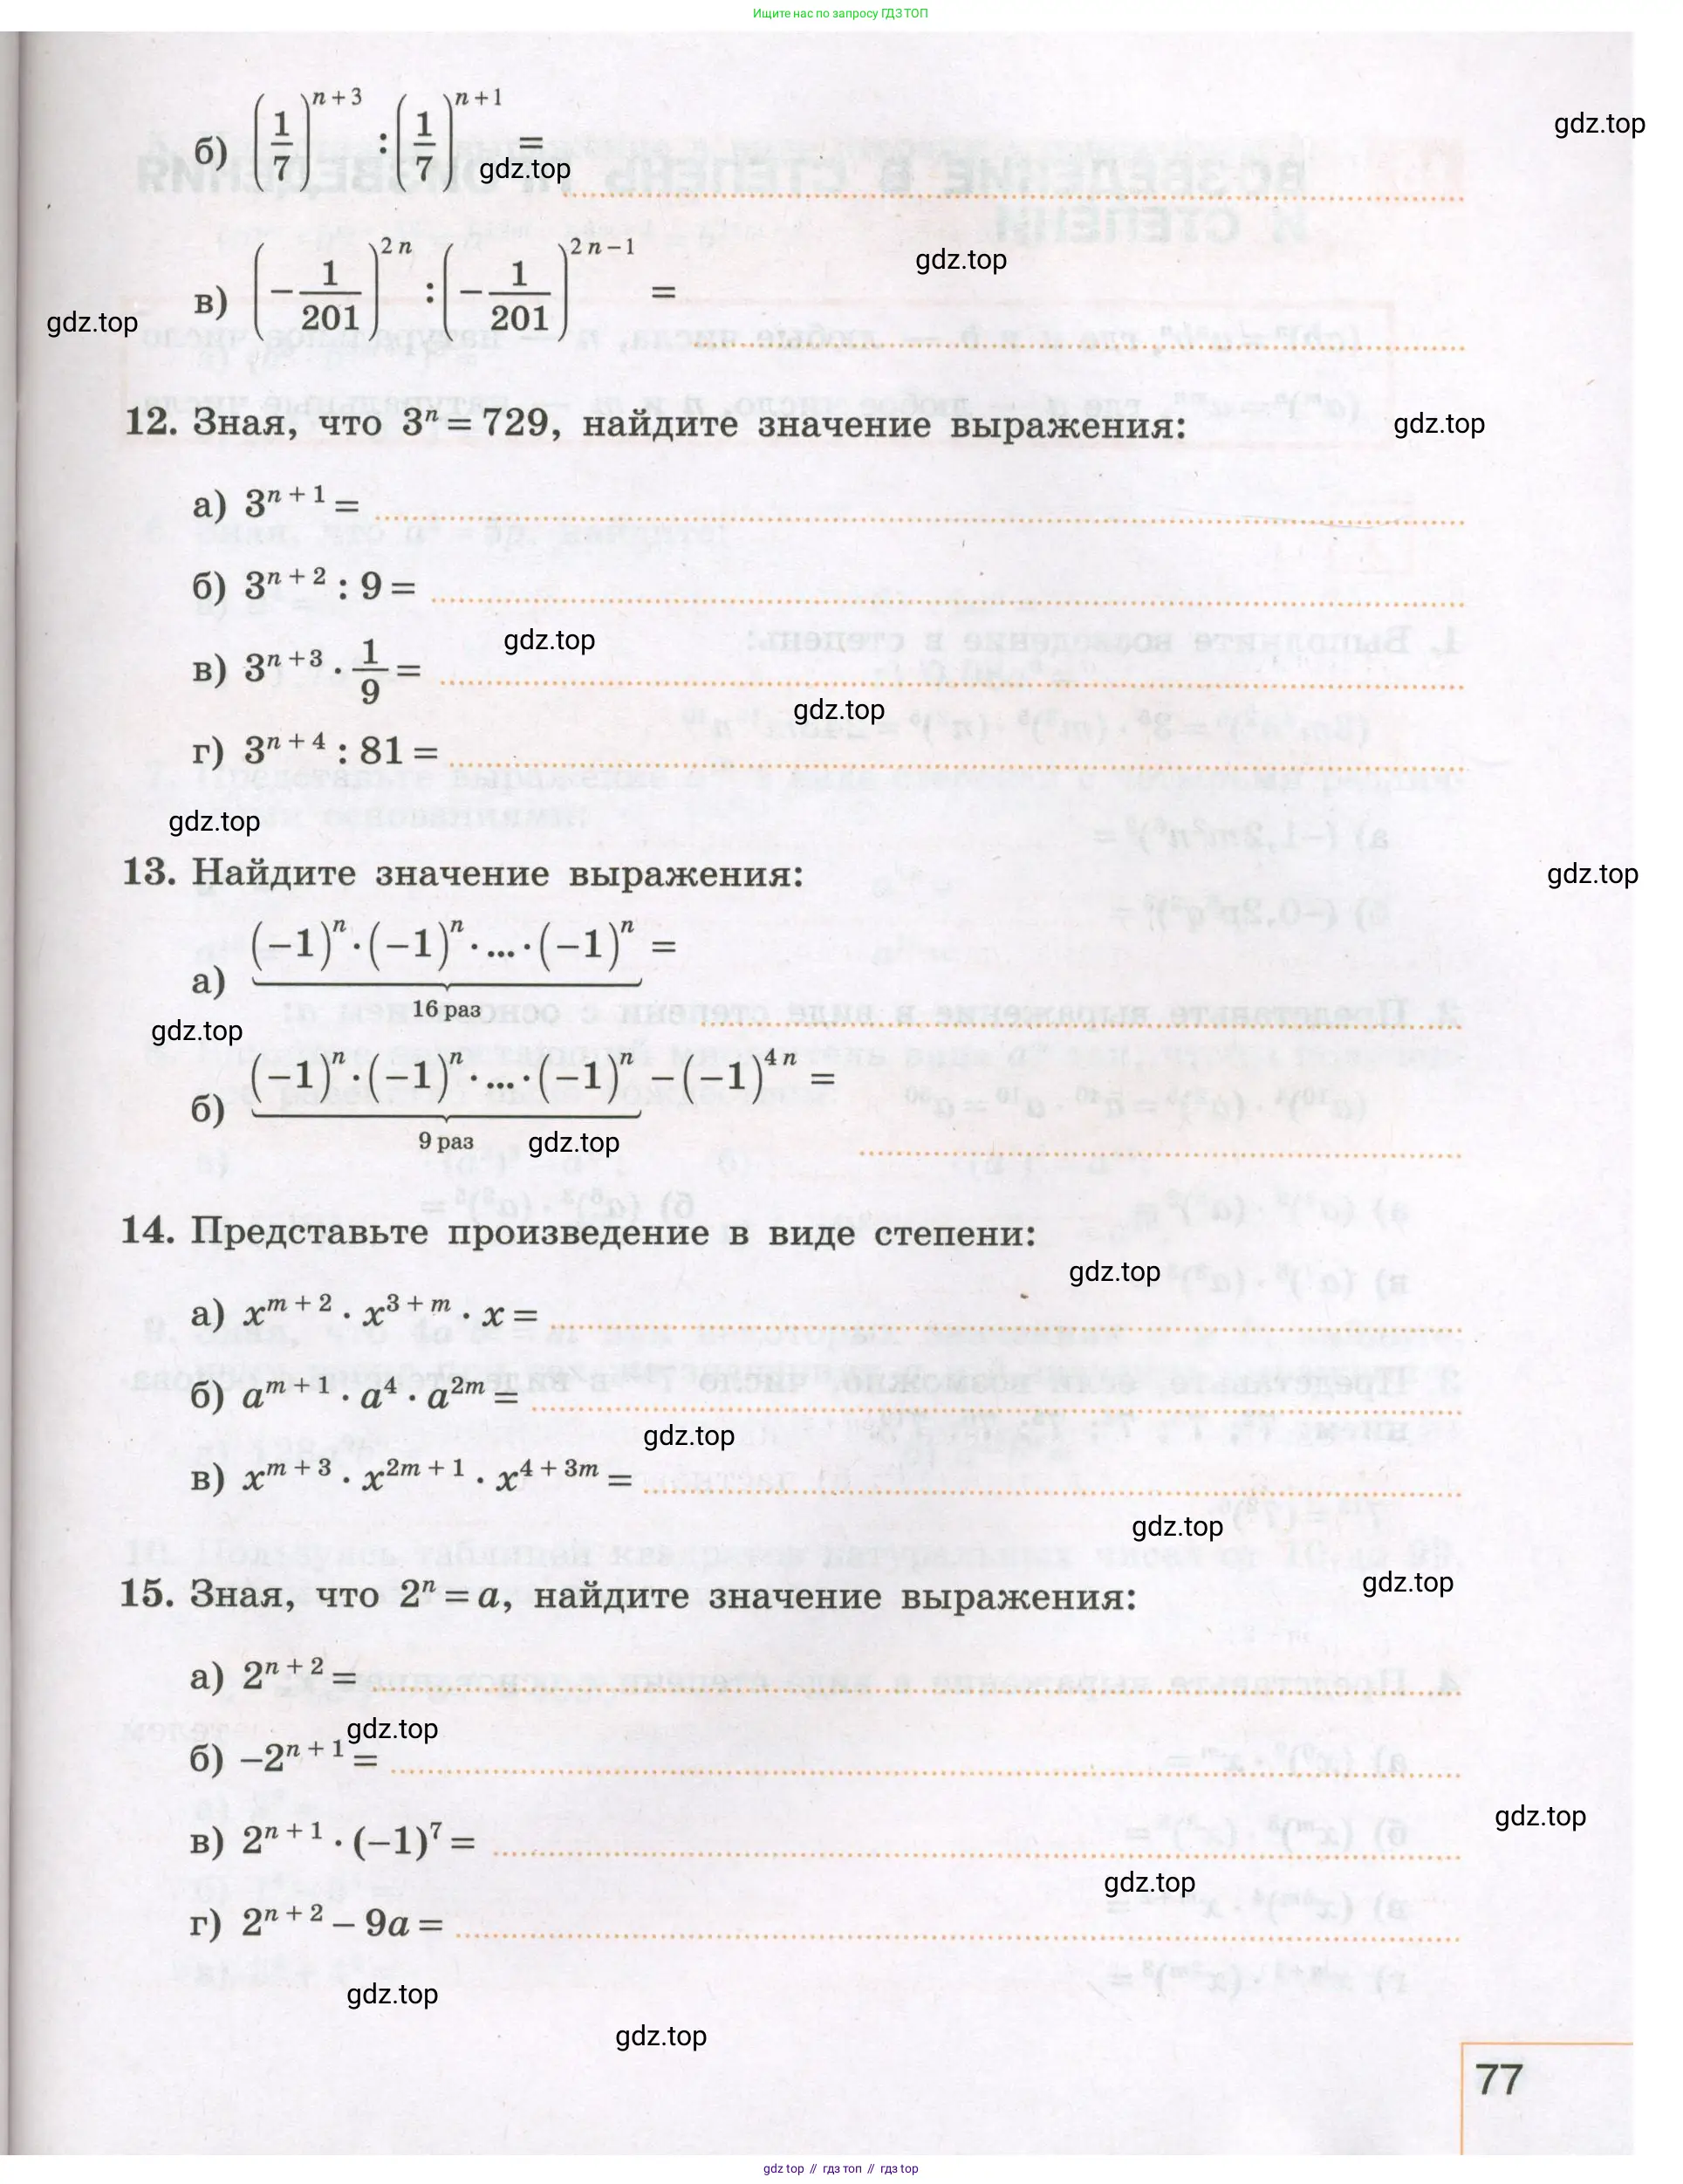 Ищите нас по запросу ГДЗ ТОП
б) (1/7)^(n + 3) : (1/7)^(n + 1) =
gdz.top
gdz.top
в) (−1/201)^(2n) : (−1/201)^(2n − 1) =
gdz.top
gdz.top
12. Зная, что 3ⁿ = 729, найдите значение выражения:
gdz.top
а) 3^(n + 1) =
б) 3^(n + 2) : 9 =
в) 3^(n + 3) · 1/9 =
gdz.top
gdz.top
г) 3^(n + 4) : 81 =
gdz.top
13. Найдите значение выражения:
gdz.top
а) (−1)ⁿ · (−1)ⁿ · ... · (−1)ⁿ =
16 раз
gdz.top
б) (−1)ⁿ · (−1)ⁿ · ... · (−1)ⁿ − (−1)^(4n) =
9 раз
gdz.top
14. Представьте произведение в виде степени:
gdz.top
а) x^(m + 2) · x^(3 + m) · x =
б) a^(m + 1) · a⁴ · a^(2m) =
gdz.top
в) x^(m + 3) · x^(2m + 1) · x^(4 + 3m) =
gdz.top
15. Зная, что 2ⁿ = a, найдите значение выражения:
gdz.top
а) 2^(n + 2) =
gdz.top
б) −2^(n + 1) =
gdz.top
в) 2^(n + 1) · (−1)⁷ =
gdz.top
г) 2^(n + 2) − 9a =
gdz.top
gdz.top
77
gdz top // гдз топ // гдз top